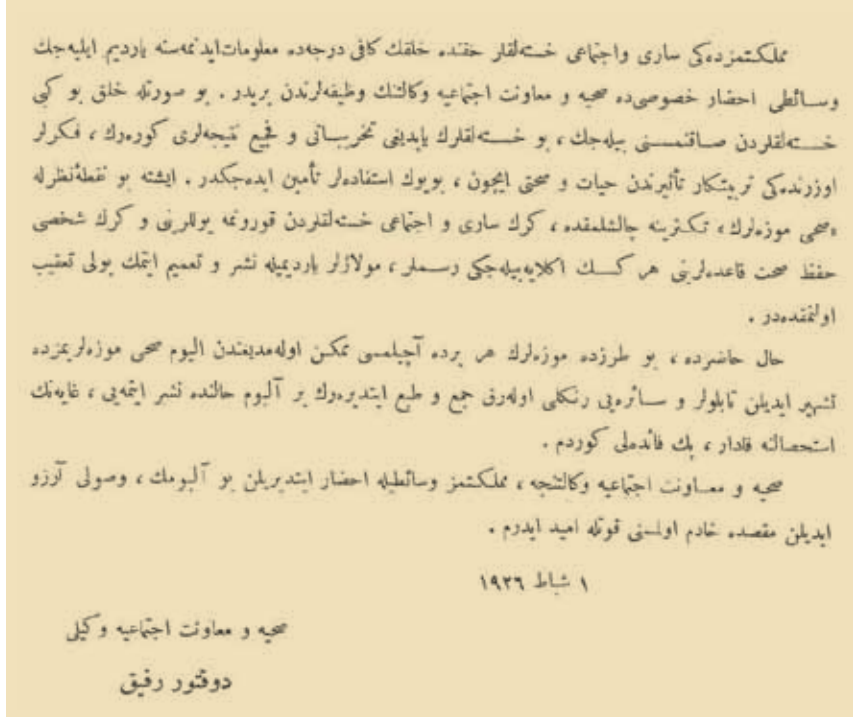 مملكتمزده‌كی ساری واجتماعی خسته‌لقلر حقنده خلقك كافی درجه‌ده معلومات ایدنمه‌سنه یاردیم ایلیه‌جك
وسائطی احضار خصوصی‌ده صحیه و معاونت اجتماعیه وكالتنك وظیفه‌لرندن بریدر . بو صورتله خلق بو كبی
خسته‌لقلردن صاقنمسنی بیله‌جك ، بو خسته‌لقلرك یاپدیغی تخریباتی و فجیع نتیجه‌لری كوره‌رك ، فكرلر
اوزرنده‌كی تربیتكار تأثیرندن حیات و صحتی ایچون ، بویوك استفاده‌لر تأمین ایده‌جكدر . ایشته بو نقطۀنظرله
«صحی موزه‌لرك» تكثرینه چالشلمقده ، كرك ساری و اجتماعی خسته‌لقلردن قورونمه یوللرینی و كرك شخصی
حفظ صحت قاعده‌لرینی هر كسك اكلایه‌بیله‌جكی رسملر ، مولاژلر یاردیمیله نشر و تعمیم ایتمك یولی تعقیب
اولنمقده‌در .
حال حاضرده ، بو طرزده موزه‌لرك هر یرده آچیلمسی ممكن اوله‌مدیغندن الیوم صحی موزه‌لریمزده
تشهیر ایدیلن تابلولر و سائره‌یی رنكلی اوله‌رق جمع و طبع ایتدیره‌رك بر آلبوم حالنده نشر ایتمه‌یی ، غایه‌نك
استحصالنه قادار ، پك فائده‌لی كوردم .
صحیه و معاونت اجتماعیه وكالتنجه ، مملكتمز وسائطیله احضار ایتدیریلن بو آلبومك ، وصولی آرزو
ایدیلن مقصده خادم اولمسنی قوتله امید ایدرم .
١ شباط ١٩٢٦
صحیه و معاونت اجتماعیه وكیلی
دوقتور رفیق